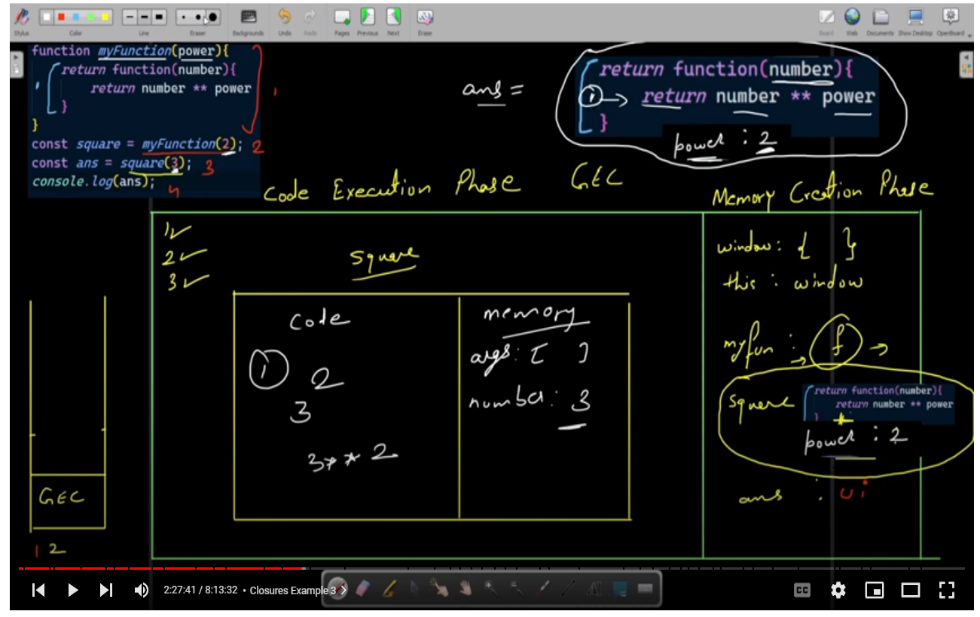 Stylus Color Line Eraser Backgrounds Undo Redo Pages Previous Next Erase Board Web Documents Show Desktop OpenBoard
function myFunction(power){
return function(number){
return number ** power
}
}
const square = myFunction(2);
const ans = square(3);
console.log(ans);
1
1
2
3
4
ans =
return function(number){
1 → return number ** power
}
power : 2
Code Execution Phase GEC
Memory Creation Phase
1✓
2✓
3✓
square
code
memory
1 2
3
3**2
args: [ ]
number: 3
window: { }
this : window
myfun : → f →
square
return function(number){
return number ** power
}
power : 2
ans : ui
GEC
1 2
2:27:41 / 8:13:32 • Closures Example 3 >
CC